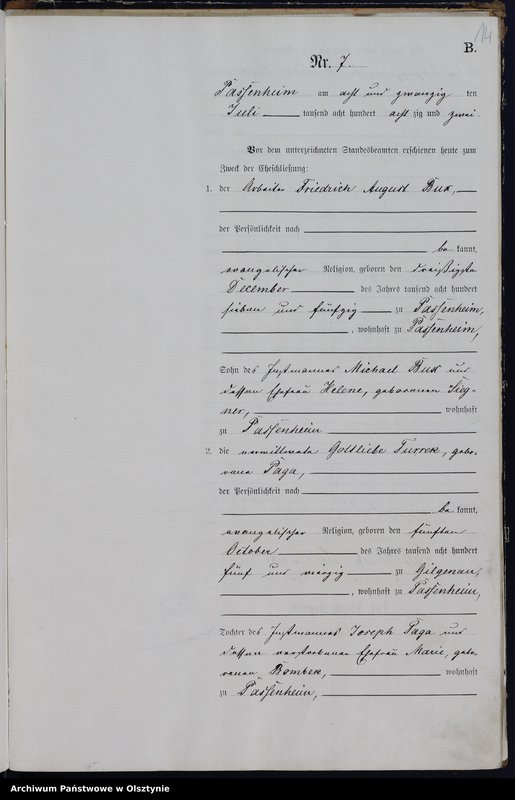 14
B.
Nr. 7.
Passenheim am acht und zwanzig ten
Juli tausend acht hundert acht zig und zwei.
Vor dem unterzeichneten Standesbeamten erschienen heute zum
Zweck der Eheschließung:
1. der Arbeiter Friedrich August Bux,
der Persönlichkeit nach
be kannt,
evangelischer Religion, geboren den dreißigsten
December des Jahres tausend acht hundert
sieben und fünfzig zu Passenheim,
, wohnhaft zu Passenheim,
Sohn des Instmannes Michael Bux und
dessen Ehefrau Helene, geborenen Sieg-
ner, wohnhaft
zu Passenheim
2. die verwittwete Gottliebe Turrek, gebo-
rene Paga,
der Persönlichkeit nach
be kannt,
evangelischer Religion, geboren den fünften
October des Jahres tausend acht hundert
fünf und vierzig zu Gilgenau,
, wohnhaft zu Passenheim,
Tochter des Instmannes Joseph Paga und
dessen verstorbener Ehefrau Marie, gebo-
renen Bombek, wohnhaft
zu Passenheim,
Archiwum Państwowe w Olsztynie